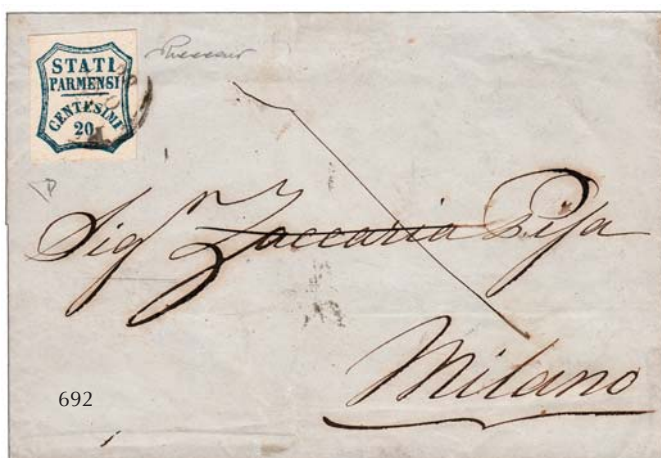 STATI
PARMENSI
CENTESIMI
20
Sig Zaccaria Pisa
Milano
692